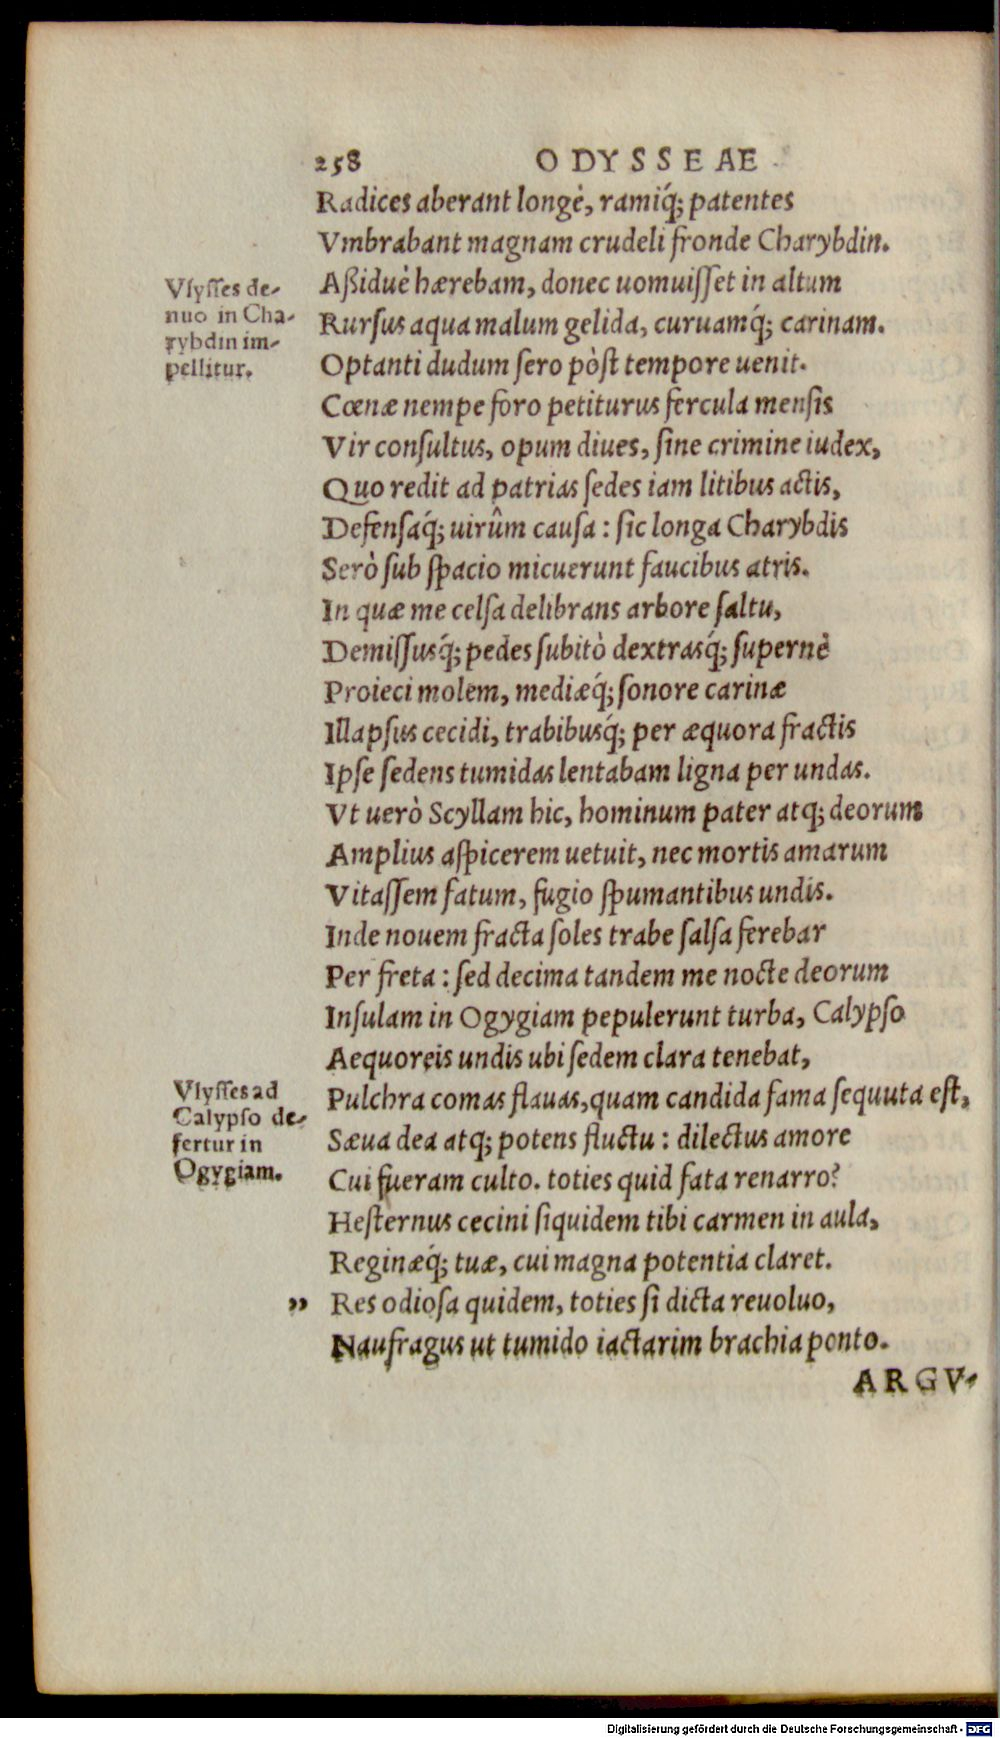 258 ODYSSEAE
Radices aberant longè, ramiq́; patentes
Vmbrabant magnam crudeli fronde Charybdin.
Vlyſſes de-
nuo in Cha-
rybdin im-
pellitur.
Aßiduè hærebam, donec uomuiſſet in altum
Rurſus aqua malum gelida, curuamq́; carinam.
Optanti dudum ſero pòſt tempore uenit.
Cœnæ nempe foro petiturus fercula menſis
Vir conſultus, opum diues, ſine crimine iudex,
Quo redit ad patrias ſedes iam litibus actis,
Defenſaq́; uirûm cauſa : ſic longa Charybdis
Serò ſub ſpacio micuerunt faucibus atris.
In quæ me celſa delibrans arbore ſaltu,
Demiſſusq́; pedes ſubitò dextrasq́; ſupernè
Proieci molem, mediæq́; ſonore carinæ
Illapſus cecidi, trabibusq́; per æquora fractis
Ipſe ſedens tumidas lentabam ligna per undas.
Vt uerò Scyllam hic, hominum pater atq; deorum
Amplius aſpicerem uetuit, nec mortis amarum
Vitaſſem fatum, fugio ſpumantibus undis.
Inde nouem fracta ſoles trabe ſalſa ferebar
Per freta : ſed decima tandem me nocte deorum
Inſulam in Ogygiam pepulerunt turba, Calypſo
Aequoreis undis ubi ſedem clara tenebat,
Vlyſſes ad
Calypſo de-
fertur in
Ogygiam.
Pulchra comas flauas, quam candida fama ſequuta eſt,
Sæua dea atq; potens fluctu : dilectus amore
Cui fueram culto. toties quid fata renarro?
Heſternus cecini ſiquidem tibi carmen in aula,
Reginæq́; tuæ, cui magna potentia claret.
„ Res odioſa quidem, toties ſi dicta reuoluo,
Naufragus ut tumido iactarim brachia ponto.
ARGV-
Digitalisierung gefördert durch die Deutsche Forschungsgemeinschaft - DFG